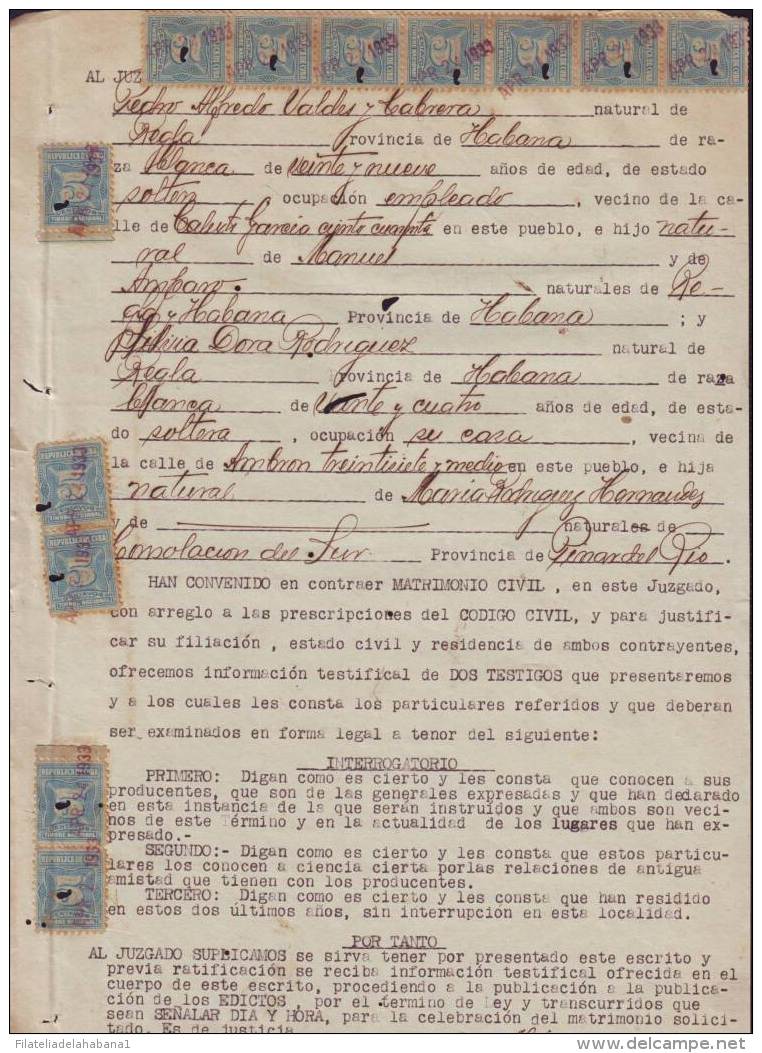 AL JUZ
Pedro Alfredo Valdes y Cabrera natural de
Regla rovincia de Habana de ra-
za blanca de veinte y nueve años de edad, de estado
solter ocupación empleado , vecino de la ca-
lle de Garcia ciento en este pueblo, e hijo natu-
ral de Manuel y de
Amparo. naturales de Re-
gla y Habana Provincia de Habana ; y
Silvia Dora Rodriguez natural de
Regla rovincia de Habana de raza
blanca de veinte y cuatro años de edad, de esta-
do soltera , ocupación su casa , vecina de
la calle de Ambron treintisiete y medio en este pueblo, e hija
natural de Maria Rodriguez Hernandez
y de naturales de
Consolacion del Sur Provincia de Pinar del Rio .
HAN CONVENIDO en contraer MATRIMONIO CIVIL , en este Juzgado,
con arreglo a las prescripciones del CODIGO CIVIL, y para justifi-
car su filiación , estado civil y residencia de ambos contrayentes,
ofrecemos información testifical de DOS TESTIGOS que presentaremos
y a los cuales les consta los particulares referidos y que deberan
ser examinados en forma legal a tenor del siguiente:
INTERROGATORIO
PRIMERO: Digan como es cierto y les consta que conocen a sus
producentes, que son de las generales expresadas y que han declarado
en esta instancia de la que serán instruídos y que ambos son veci-
nos de este Término y en la actualidad de los lugares que han ex-
presado.-
SEGUNDO:- Digan como es cierto y les consta que estos particu-
lares los conocen a ciencia cierta porlas relaciones de antigua
amistad que tienen con los producentes.
TERCERO: Digan como es cierto y les consta que han residido
en estos dos últimos años, sin interrupción en esta localidad.
POR TANTO
AL JUZGADO SUPLICAMOS se sirva tener por presentado este escrito y
previa ratificación se reciba información testifical ofrecida en el
cuerpo de este escrito, procediendo a la publicación a la publica-
ción de los EDICTOS , por el termino de Ley y transcurridos que
sean SEÑALAR DIA Y HORA, para la celebración del matrimonio solici-
tado. Es de justicia
Filateliadelahabana1
delcampe.net